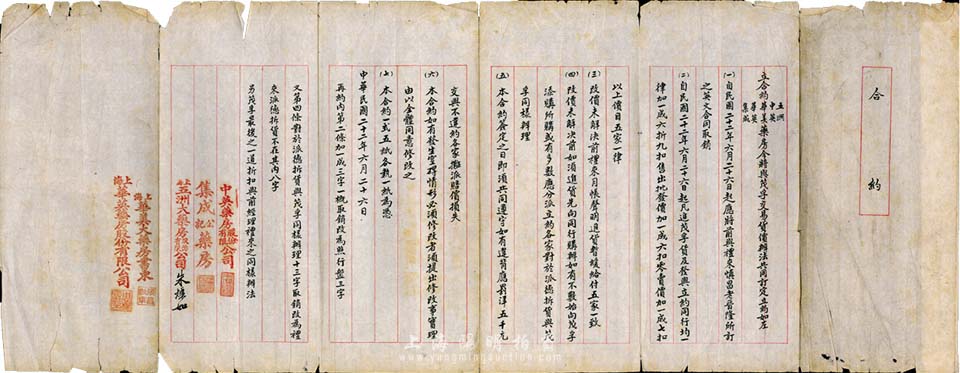 合約
五洲
中英
立合約華美藥房今將與茂孚交易貨價辦法共同訂定立約如左
華英
集成
(一) 自民國二十二年六月二十六起應將前與禮來慎昌老晉隆所訂
之英文合同取銷
(二) 自民國二十二年六月二十六起凡進茂孚貨及發與立約同行均一
律加一成六折九扣售出批發價加一成六扣零賣價加一成七扣
以上價目五家一律
(三) 改價未解決前禮來月帳聲明退貨暫緩給付五家一致
(四) 改價未解決前如須進貨先向同行購辦如有不敷始向茂孚
添購所購或有多數應分派立約各家對於派德拆貨與茂
孚同樣辦理
(五) 本合約簽定之日即須共同遵守如有違背應罰洋五千元
交與不違約各家攤派賠償損失
(六) 本合約如有發生窒礙情形必須修改者須提出修改事實理
由以全體同意修改之
(七) 本合約一式五紙各執一紙為憑
中華民國二十二年六月二十六日
再約內第二條加一成三字一概取銷改為照行盤三字
又第四條對於派德拆貨與茂孚同樣辦理十三字取銷改為禮
來派德拆貨不在其內八字
另茂孚最後之一道折扣與前經理禮來之同樣辦法
中英藥房股份有限公司
集成公記藥房
上海五洲大藥房股份有限公司
上海華美大藥房
上海華英藥房股份有限公司
上海陽明拍賣
www.yangmingauction.com